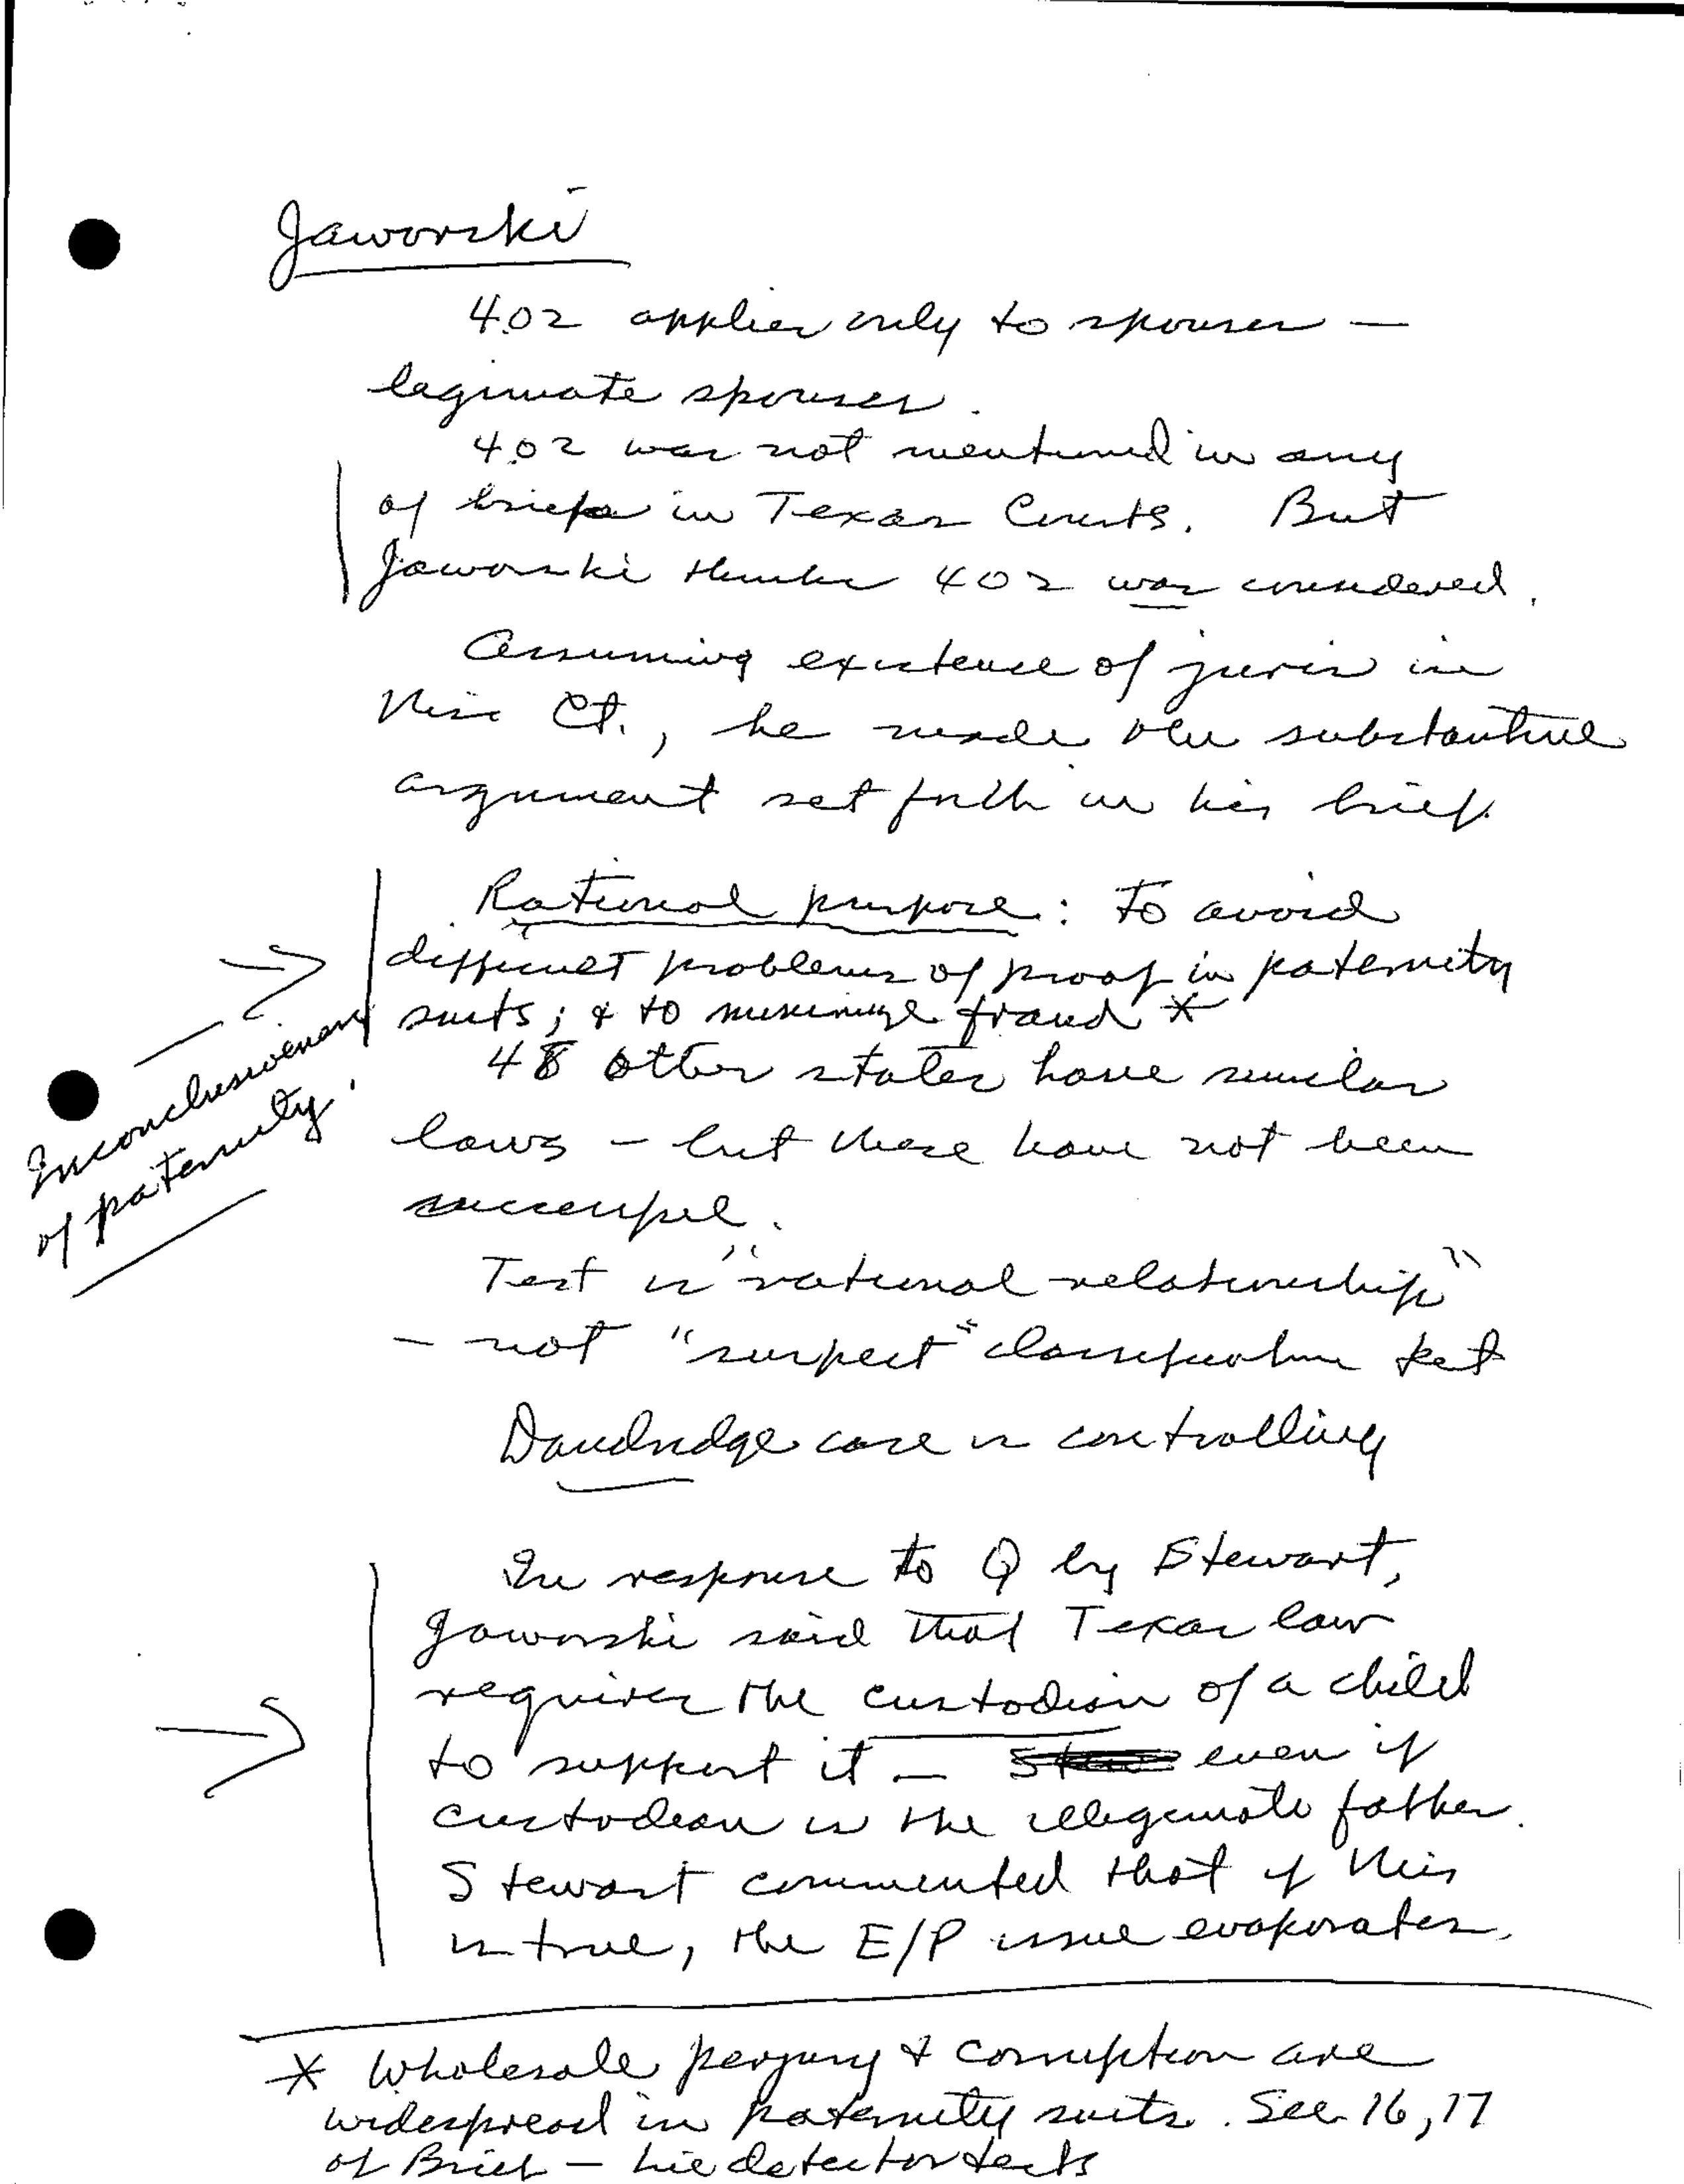 Jaworski
402 applies only to spouses —
legimate spouses.
402 was not mentioned in any
of briefs in Texas Courts. But
Jaworski thinks 402 was considered.
Assuming existence of juris in
this Ct., he made the substantive
argument set forth in his brief.
Rational purpose: to avoid
difficult problems of proof in paternity
suits; & to minimize fraud *
Inconclusiveness
of paternity.
48 other states have similar
laws – but these have not been
successful.
Test is "rational relationship"
– not "suspect" classification test
Dandridge case is controlling
In response to Q by Stewart,
Jaworski said that Texas law
requires the custodian of a child
to support it — even if
custodian is the illegimate father.
Stewart commented that if this
is true, the E/P issue evaporates.
* Wholesale perjury & corruption are
widespread in paternity suits. See 16, 17
of Brief – lie detector tests